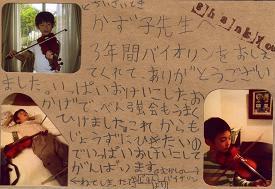 かず子先生
Thank you
3年間バイオリンをおしえ
てくれて、ありがとうござい
ました。いっぱいおけいこしたお
かげで、べん強会もうまく
ひけました。これからも
じょうずにひきたいの
でいっぱいおけいこして
がんばります。